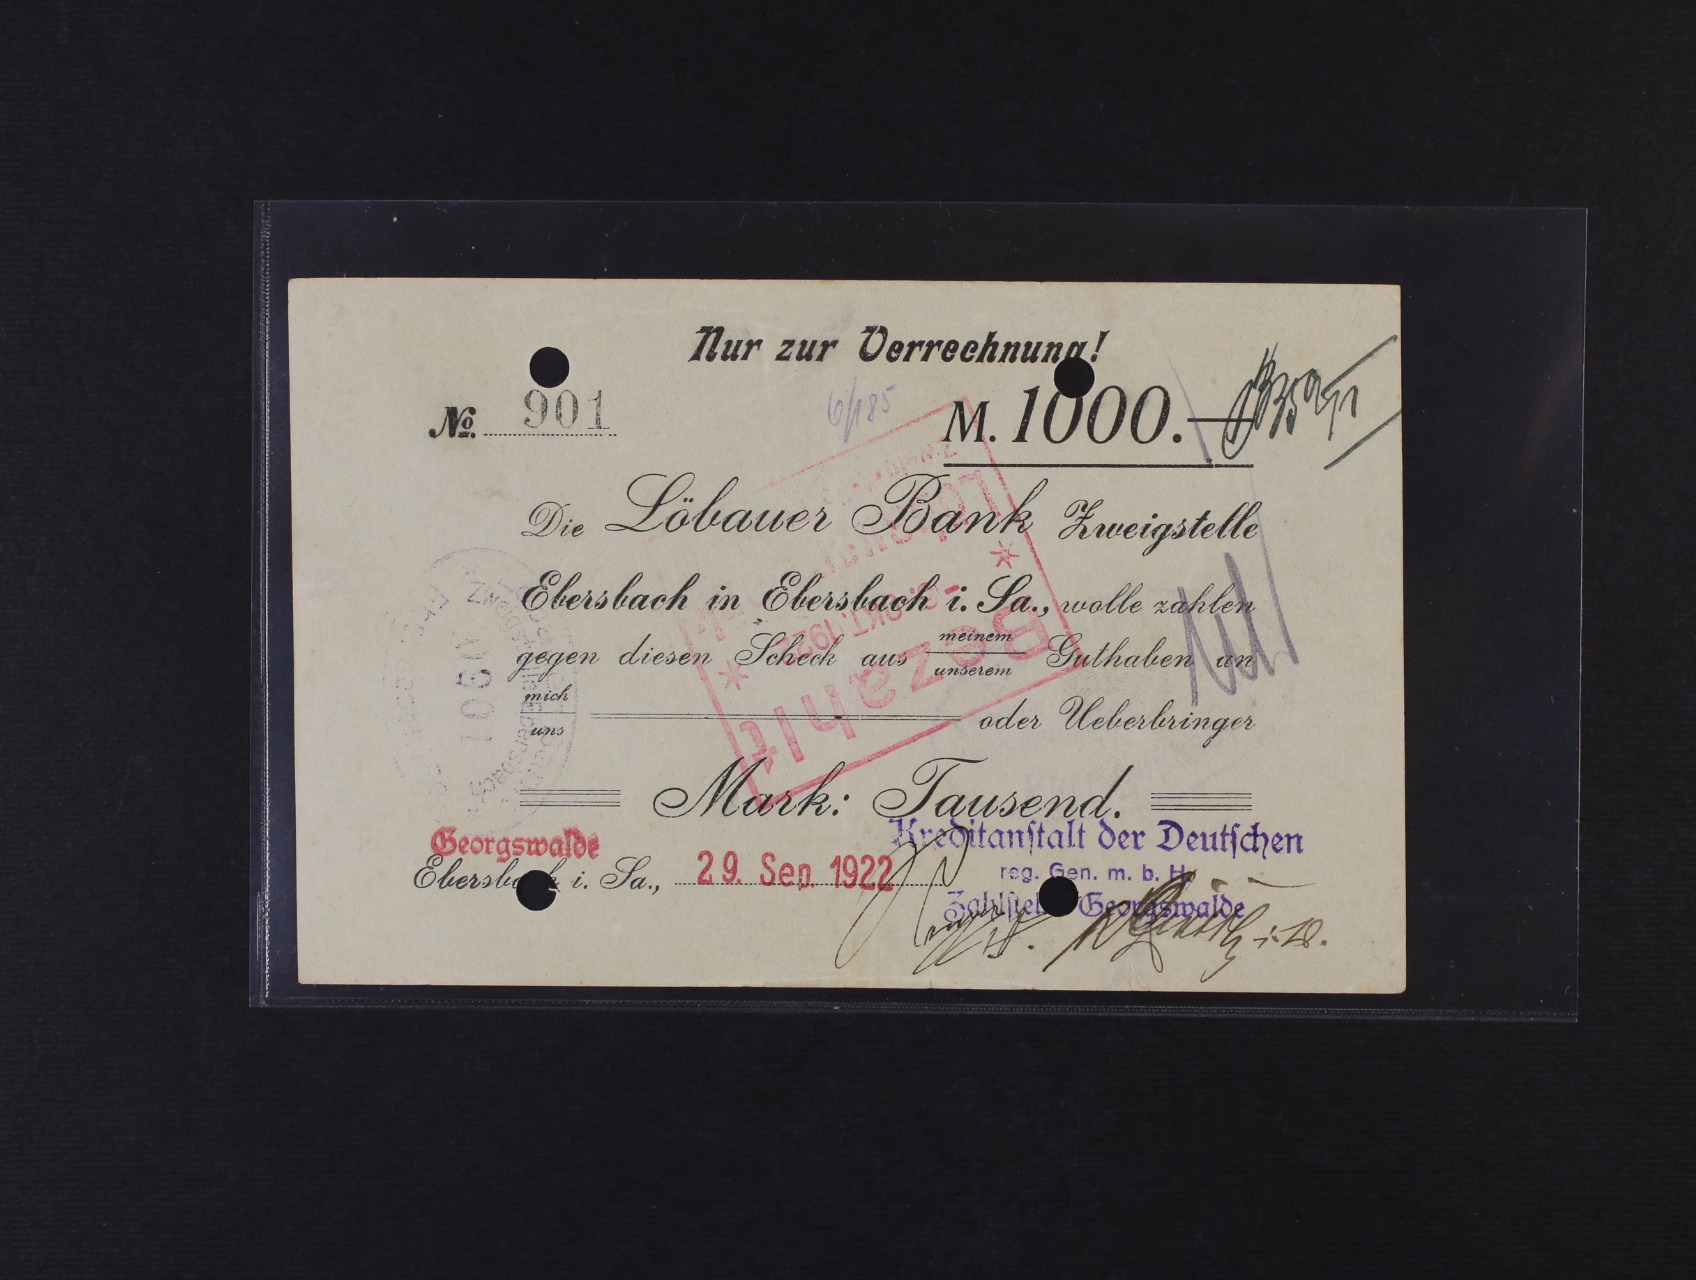 Nur zur Verrechnung!
No. 901
6/185
M. 1000.—
Die Löbauer Bank Zweigstelle
Ebersbach in Ebersbach i. Sa., wolle zahlen
gegen diesen Scheck aus meinem
unserem Guthaben an
mich
uns oder Ueberbringer
Mark: Tausend.
Bezahlt
OKT. 1922
Löbauer
1060
Zweigstelle Ebersbach
Georgswalde
Ebersbach i. Sa., 29. Sep. 1922
Kreditanstalt der Deutschen
reg. Gen. m. b. H.
Zahlstelle Georgswalde